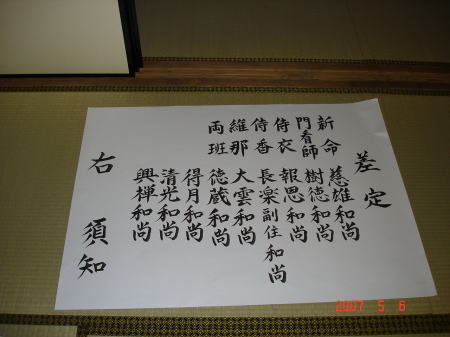 差定
新命 慈雄和尚
門看師 樹徳和尚
侍衣 報恩和尚
侍香 長楽副住和尚
維那 大雲和尚
両班 徳蔵和尚
得月和尚
清光和尚
興禅和尚
右 須知
2007 5 6